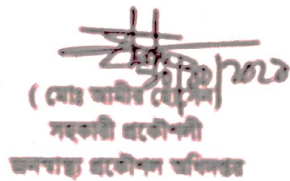 (মোঃ আমীর হোসেন)
সহকারী প্রকৌশলী
জনস্বাস্থ্য প্রকৌশল অধিদপ্তর